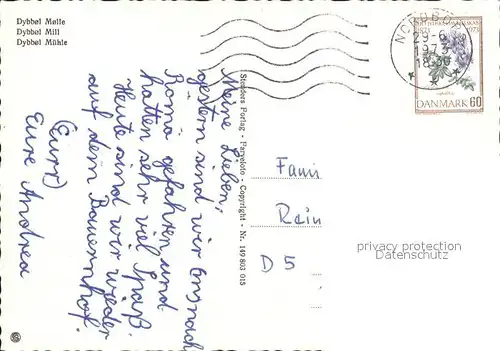 Dybbøl Mølle
Dybbøl Mill
Dybbøl Mühle
Meine Lieben,
gestern sind wir nach
Römö gefahren und
hatten sehr viel Spaß.
Heute sind wir wieder
auf dem Bauernhof.
Eure Andrea
Stenders Forlag - Farvefoto - Copyright - Nr. 149 803 015
NORDBORG
29-6
1973
18-30
1873
1973
DANMARK 60
Fami
Rein
D 5
privacy protection
Datenschutz